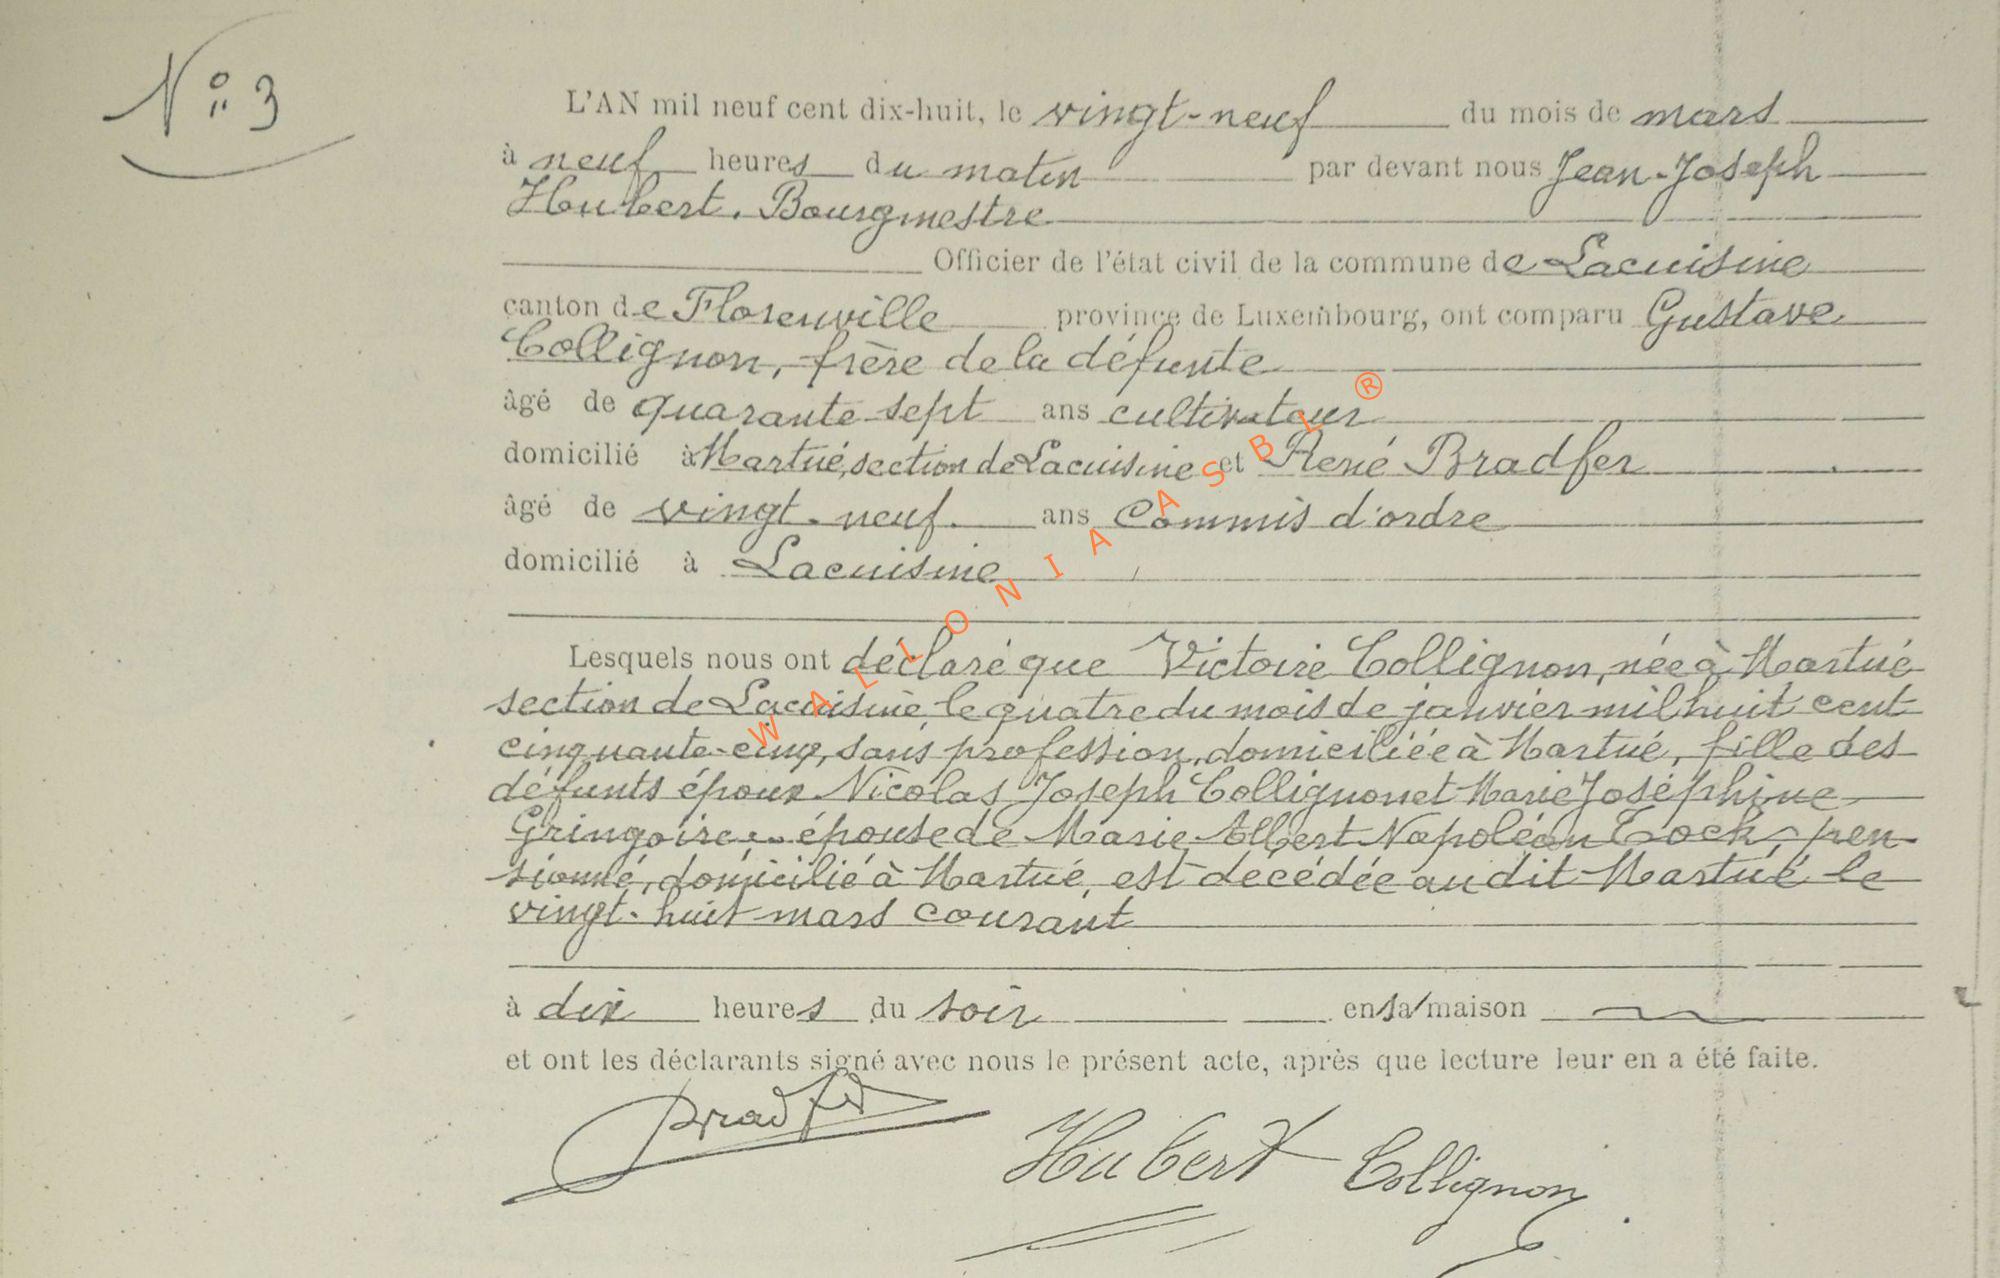 N° 3
L'AN mil neuf cent dix-huit, le vingt-neuf du mois de mars
à neuf heures du matin par devant nous Jean-Joseph
Hubert. Bourgmestre
Officier de l'état civil de la commune de Lacuisine
canton de Florenville province de Luxembourg, ont comparu Gustave
Collignon, frère de la défunte
âgé de quarante sept ans cultivateur
domicilié à Martué, section de Lacuisine et René Bradfer
âgé de vingt-neuf. ans Commis d'ordre
domicilié à Lacuisine
Lesquels nous ont déclaré que Victoire Collignon, née à Martué
section de Lacuisine, le quatre du mois de janvier mil huit cent
cinquante-cinq, sans profession, domiciliée à Martué, fille des
défunts époux Nicolas Joseph Collignon et Marie Joséphine
Gringoire épouse de Marie Albert Napoléon Cock, pen-
sionné, domicilié à Martué, est décédée au dit Martué le
vingt-huit mars courant
à dix heures du soir en sa maison
et ont les déclarants signé avec nous le présent acte, après que lecture leur en a été faite.
Bradfer Hubert Collignon
WALLONIA ASBL ®